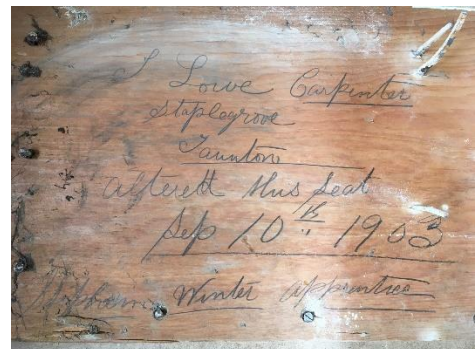 S Lowe Carpenter
Staplegrove
Taunton
alterett this Seat
Sep 10th 1903
Winter apprentice